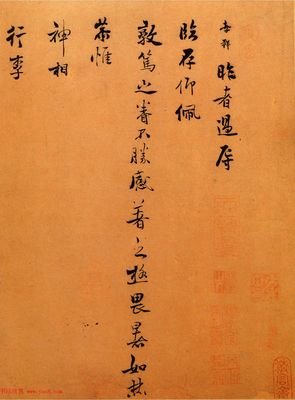 昨者過辱
臨存仰佩
敦篤之眷不勝感著之極畏暑如焚
恭惟
神相
行李